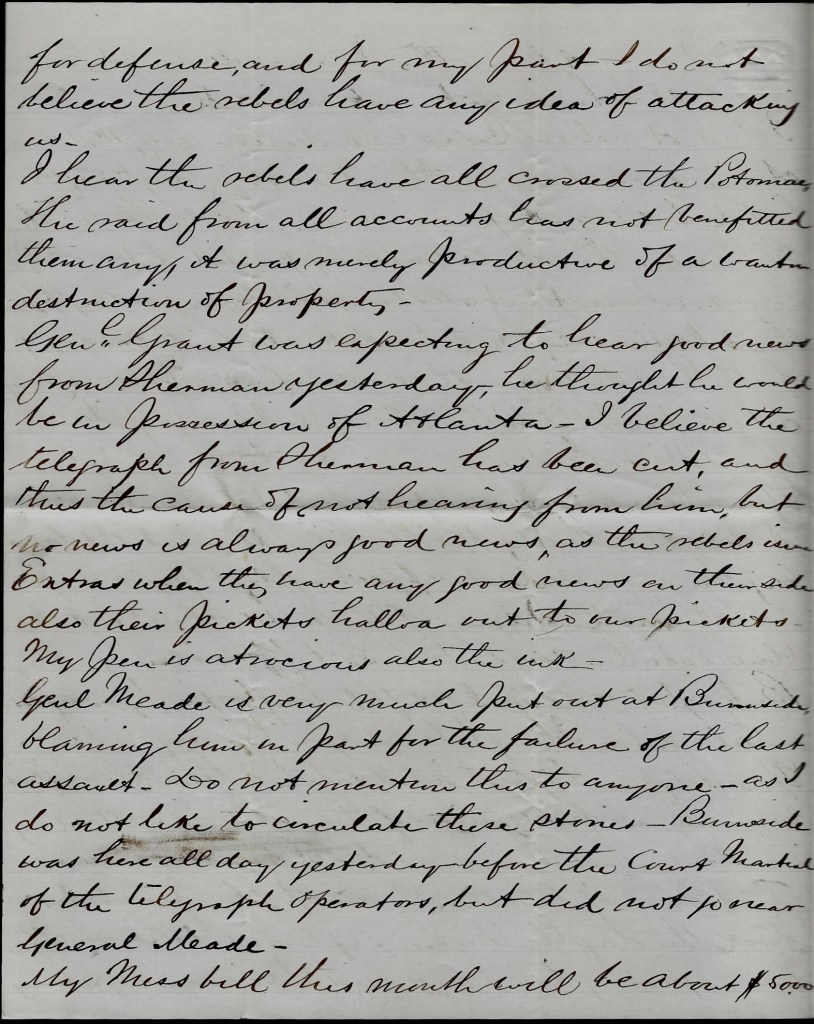 for defense, and for my part I do not
believe the rebels have any idea of attacking
us-
I hear the rebels have all crossed the Potomac,
the raid from all accounts has not benefitted
them any, it was merely productive of a wanton
destruction of property-
Genl. Grant was expecting to hear good news
from Sherman yesterday, he thought he would
be in possession of Atlanta - I believe the
telegraph from Sherman has been cut, and
thus the cause of not hearing from him, but
no news is always good news, as the rebels issue
Extras when they have any good news on their side
also their pickets halloa out to our pickets-
My pen is atrocious also the ink-
Genl Meade is very much put out at Burnside,
blaming him in part for the failure of the last
assault- Do not mention this to anyone - as I
do not like to circulate these stories - Burnside
was here all day yesterday before the Court Martial
of the telegraph operators, but did not go near
General Meade-
My Mess bill this month will be about $50.00